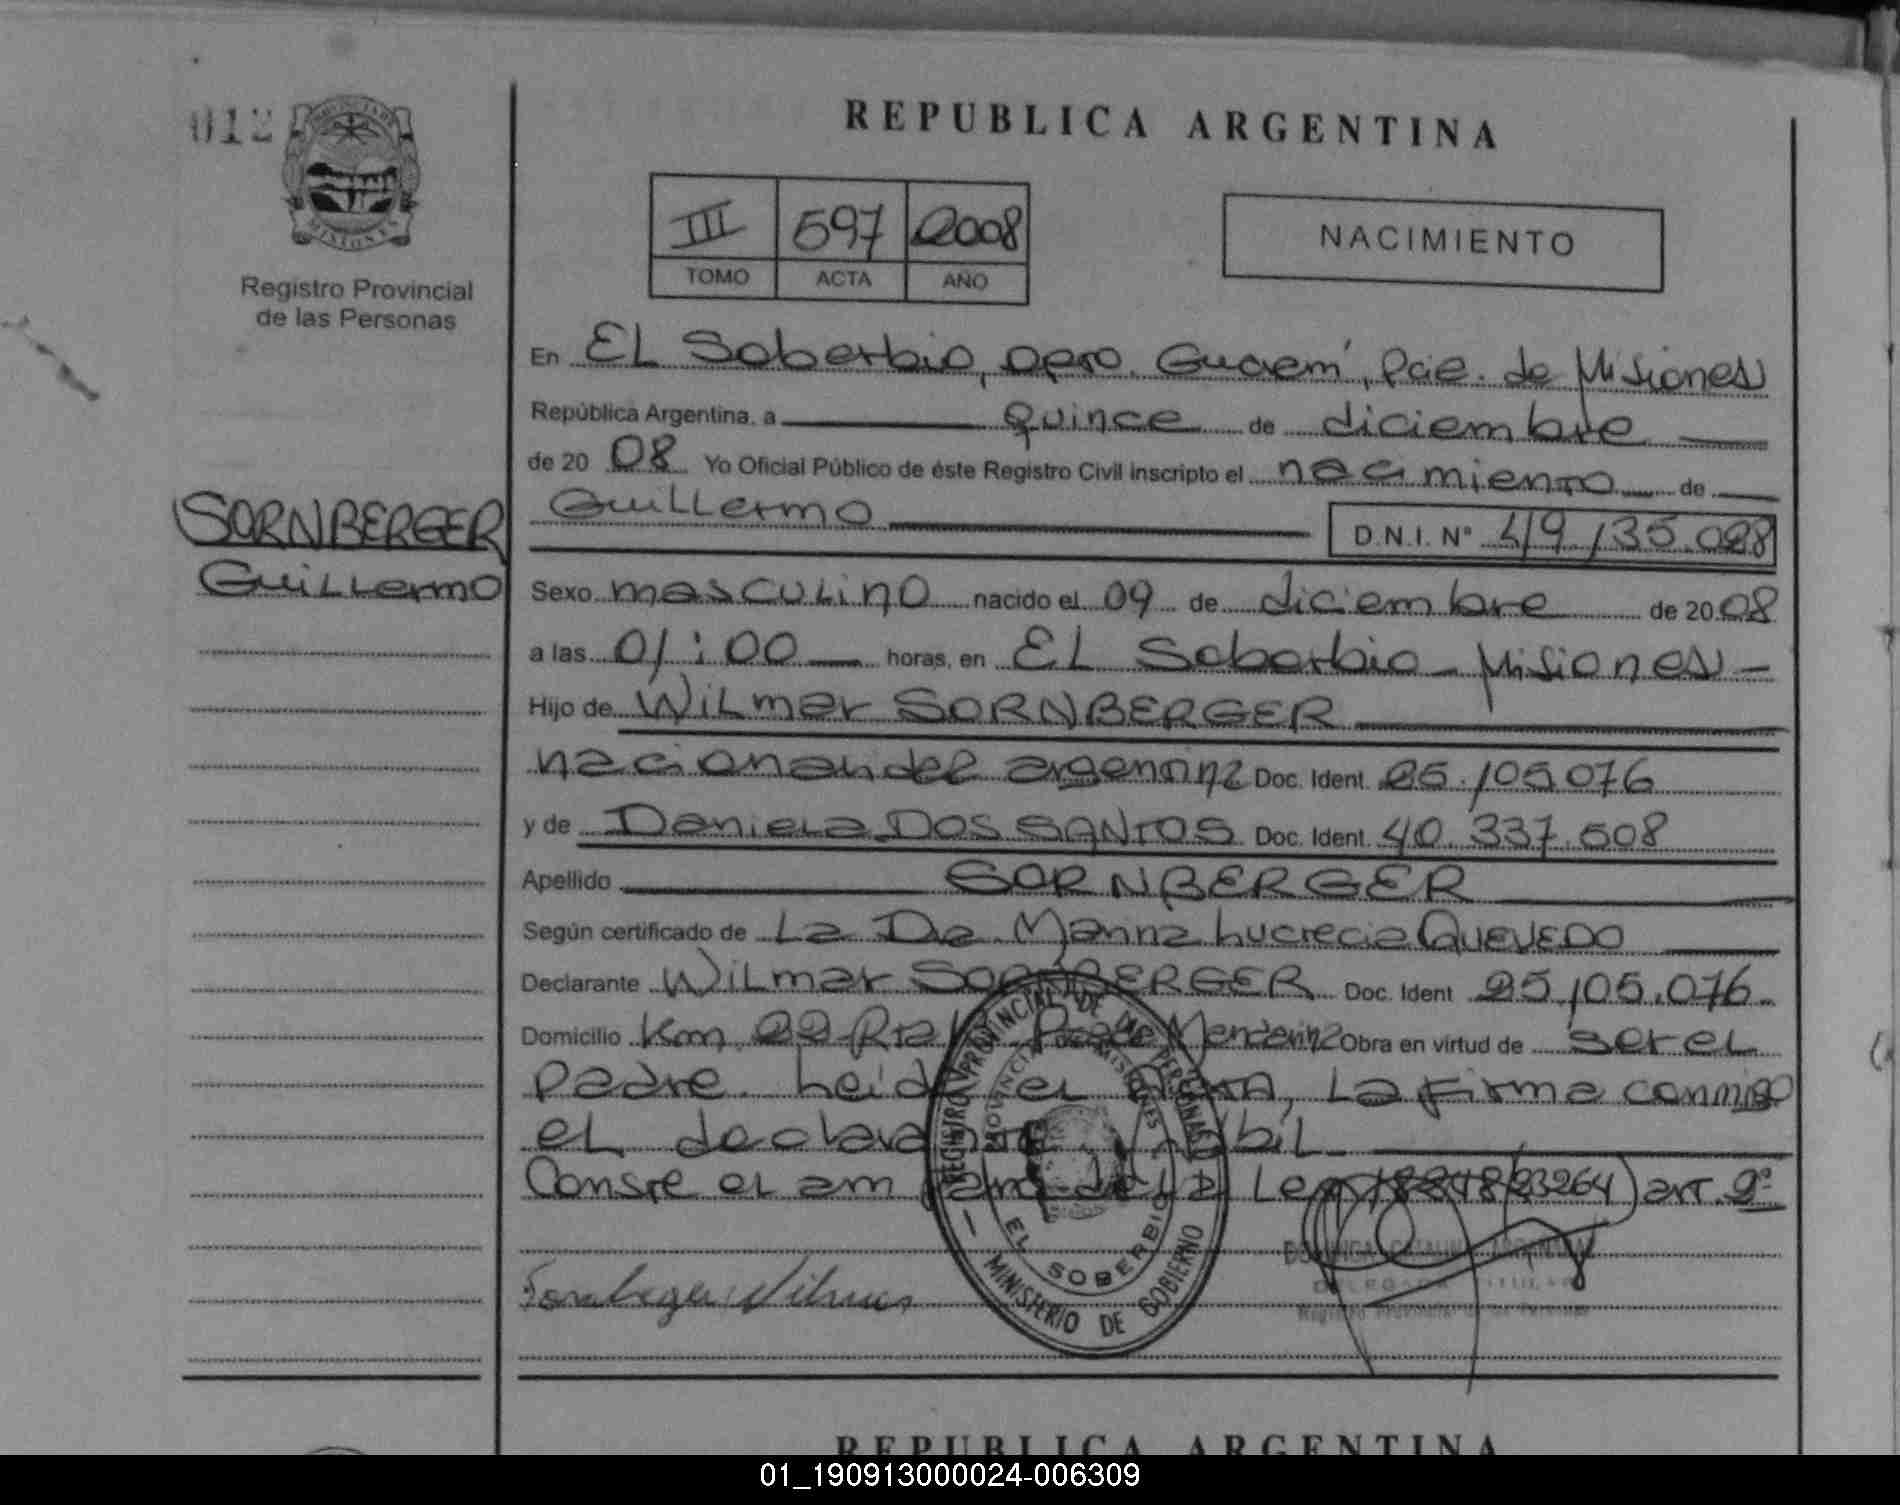 012
PROVINCIA DE
MISIONES
Registro Provincial
de las Personas
SORNBERGER
Guillermo
REPUBLICA ARGENTINA
III 597 2008
TOMO ACTA AÑO
NACIMIENTO
En EL Soberbio, Dpto. Guaraní, Pcie. de Misiones
República Argentina, a quince de diciembre
de 20 08 Yo Oficial Público de éste Registro Civil inscripto el nacimiento de
Guillermo D.N.I. N° 49.135.028
Sexo masculino nacido el 09 de diciembre de 20 08
a las 01:00 horas, en EL Soberbio - Misiones -
Hijo de Wilmar SORNBERGER
nacionalidad argentina Doc. Ident. 25.105.076
y de Daniela DOS SANTOS Doc. Ident. 40.337.508
Apellido SORNBERGER
Según certificado de La Dra. Marina Lucrecia QUEVEDO
Declarante Wilmar SORNBERGER Doc. Ident 25.105.076
Domicilio Km. 22 Rta Obra en virtud de ser el
padre. Leida el ACTA, La firma conmigo
el declarante hábil
Conste el am de la Ley 18248 (23264) art. 2º
REGISTRO PROVINCIAL DE LAS PERSONAS
PROVINCIA MISIONES
EL SOBERBIO
MINISTERIO DE GOBIERNO
Sornberger Wilmar
DELEGADA TITULAR
Registro Provincial de las Personas
REPUBLICA ARGENTINA
01_190913000024-006309